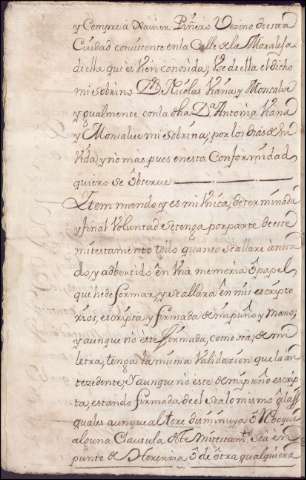 y Compre a Xavier Piñero Vezino de esta
Ciudad convicente en la Calle de la Moraleja
della que es bien conosida, herede ella el dicho
mi sobrino Dn Nicolas Viana, y Montalve
y igualmente con la dha Da Antonia Viana
y Montalve mi sobrina, por los dias de su
vida y no mas pues en esta Conformidad
quiero se observe
Item mando y es mi Unica, determinada
y final Voluntad se tenga por parte de este
mi testamento todo quanto se allare anota
do, y advertido en Una memoria o papel
que he de formar, y se allara en mis escripto
rios, escripta, y firmada de mi puño y mano,
y aunque no este firmada, como sea, de mi
letra, tenga la misma Validacion que la an
tezedente; y aunque no este de mi puño escrip
ta, estando firmada de el sea lo mismo
quales aunque altere diminuya o
alguna Clausula de este mi testamto sea en
punto de Herencia o de otra qualquiera